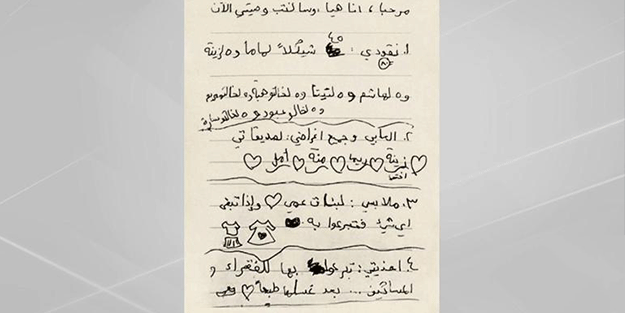 مرحبا، أنا هيا، وسأكتب وصيتي الآن
١. نقودي: ٤٥ شيكلاً لماما و٥ لزينة
و٥ لهاشم و٥ لتيتا و٥ لخالتو هبة و٥ لخالتو مريم
و٥ لخالو عبود و٥ لخالتو سارة
٢. ألعابي وجميع أغراضي: لصديقاتي
زينة ♡ ريما ♡ منة ♡ أمل ♡
أختي
٣. ملابسي: لبنات عمي ♡ وإذا تبقى
أي شيء فتبرعوا به
٤. أحذيتي: تبرعوا بها للفقراء و
المساكين... بعد غسلها طبعاً ♡